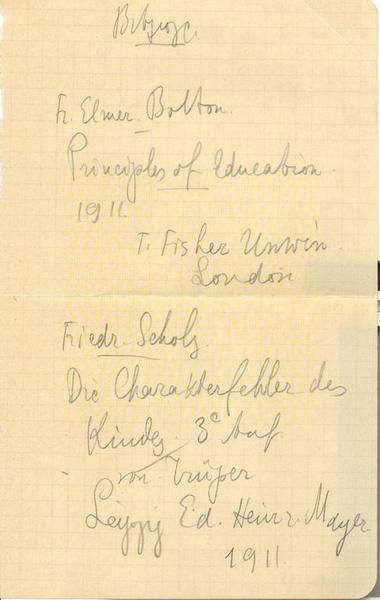 Fr. Elmer Bolton.
Principles of Education.
1911.
T. Fisher Unwin.
London
Friedr. Scholz.
Die Charakterfehler des
Kindes. 3e Auf
von Trüper
Leipzig Ed. Heinr. Mayer
1911.